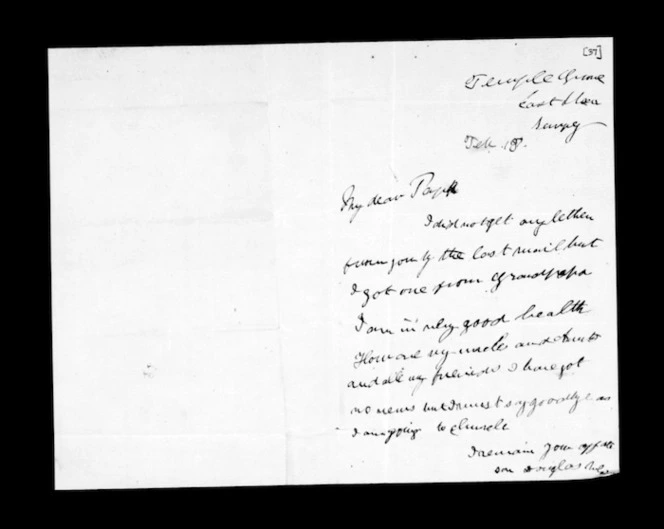 [37]
Temple Grove
East Sheen
Surrey
Feb. 18.
My dear Papa
I did not get any letter
from you by the last mail but
I got one from Grandpapa
I am in very good health
How are my uncles and Aunts
and all my friends I have got
no news but I must say goodbye as
I am going to Church
I remain your affte
son Douglas